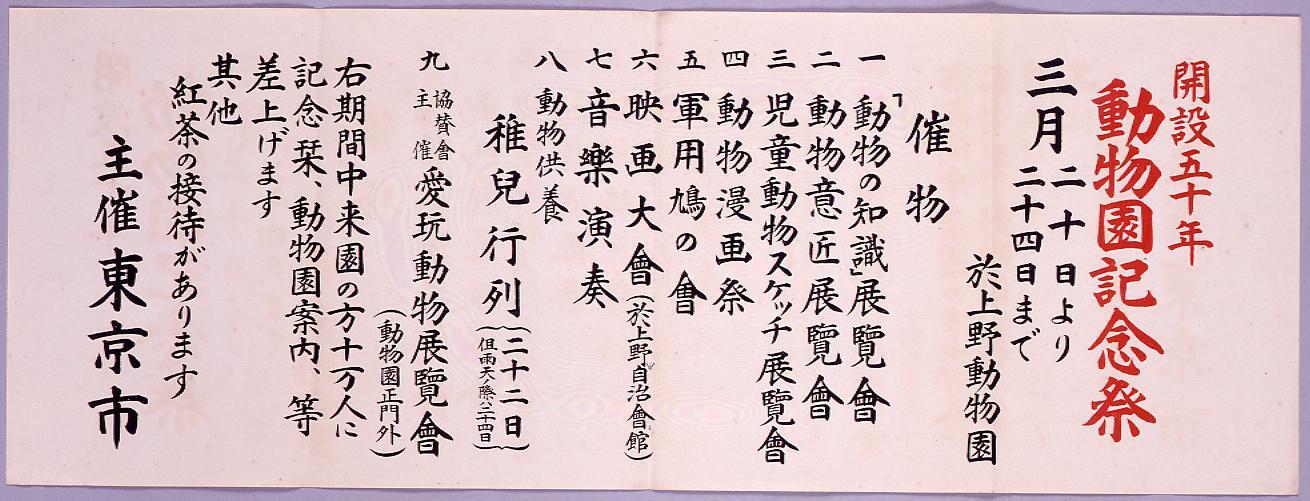 開設五十年
動物園記念祭
三月 二十日より
二十四日まで
於上野動物園
催物
一 「動物の知識」展覽會
二 動物意匠展覽會
三 児童動物スケッチ展覽會
四 動物漫画祭
五 軍用鳩の會
六 映画大會(於上野自治會館)
七 音樂演奏
八 動物供養
稚兒行列(二十二日)
(但雨天ノ際ハ二十四日)
九 協賛會主催 愛玩動物展覽會
(動物園正門外)
右期間中来園の方十万人に
記念栞、動物園案内、等
差上げます
其他
紅茶の接待があります
主催 東京市